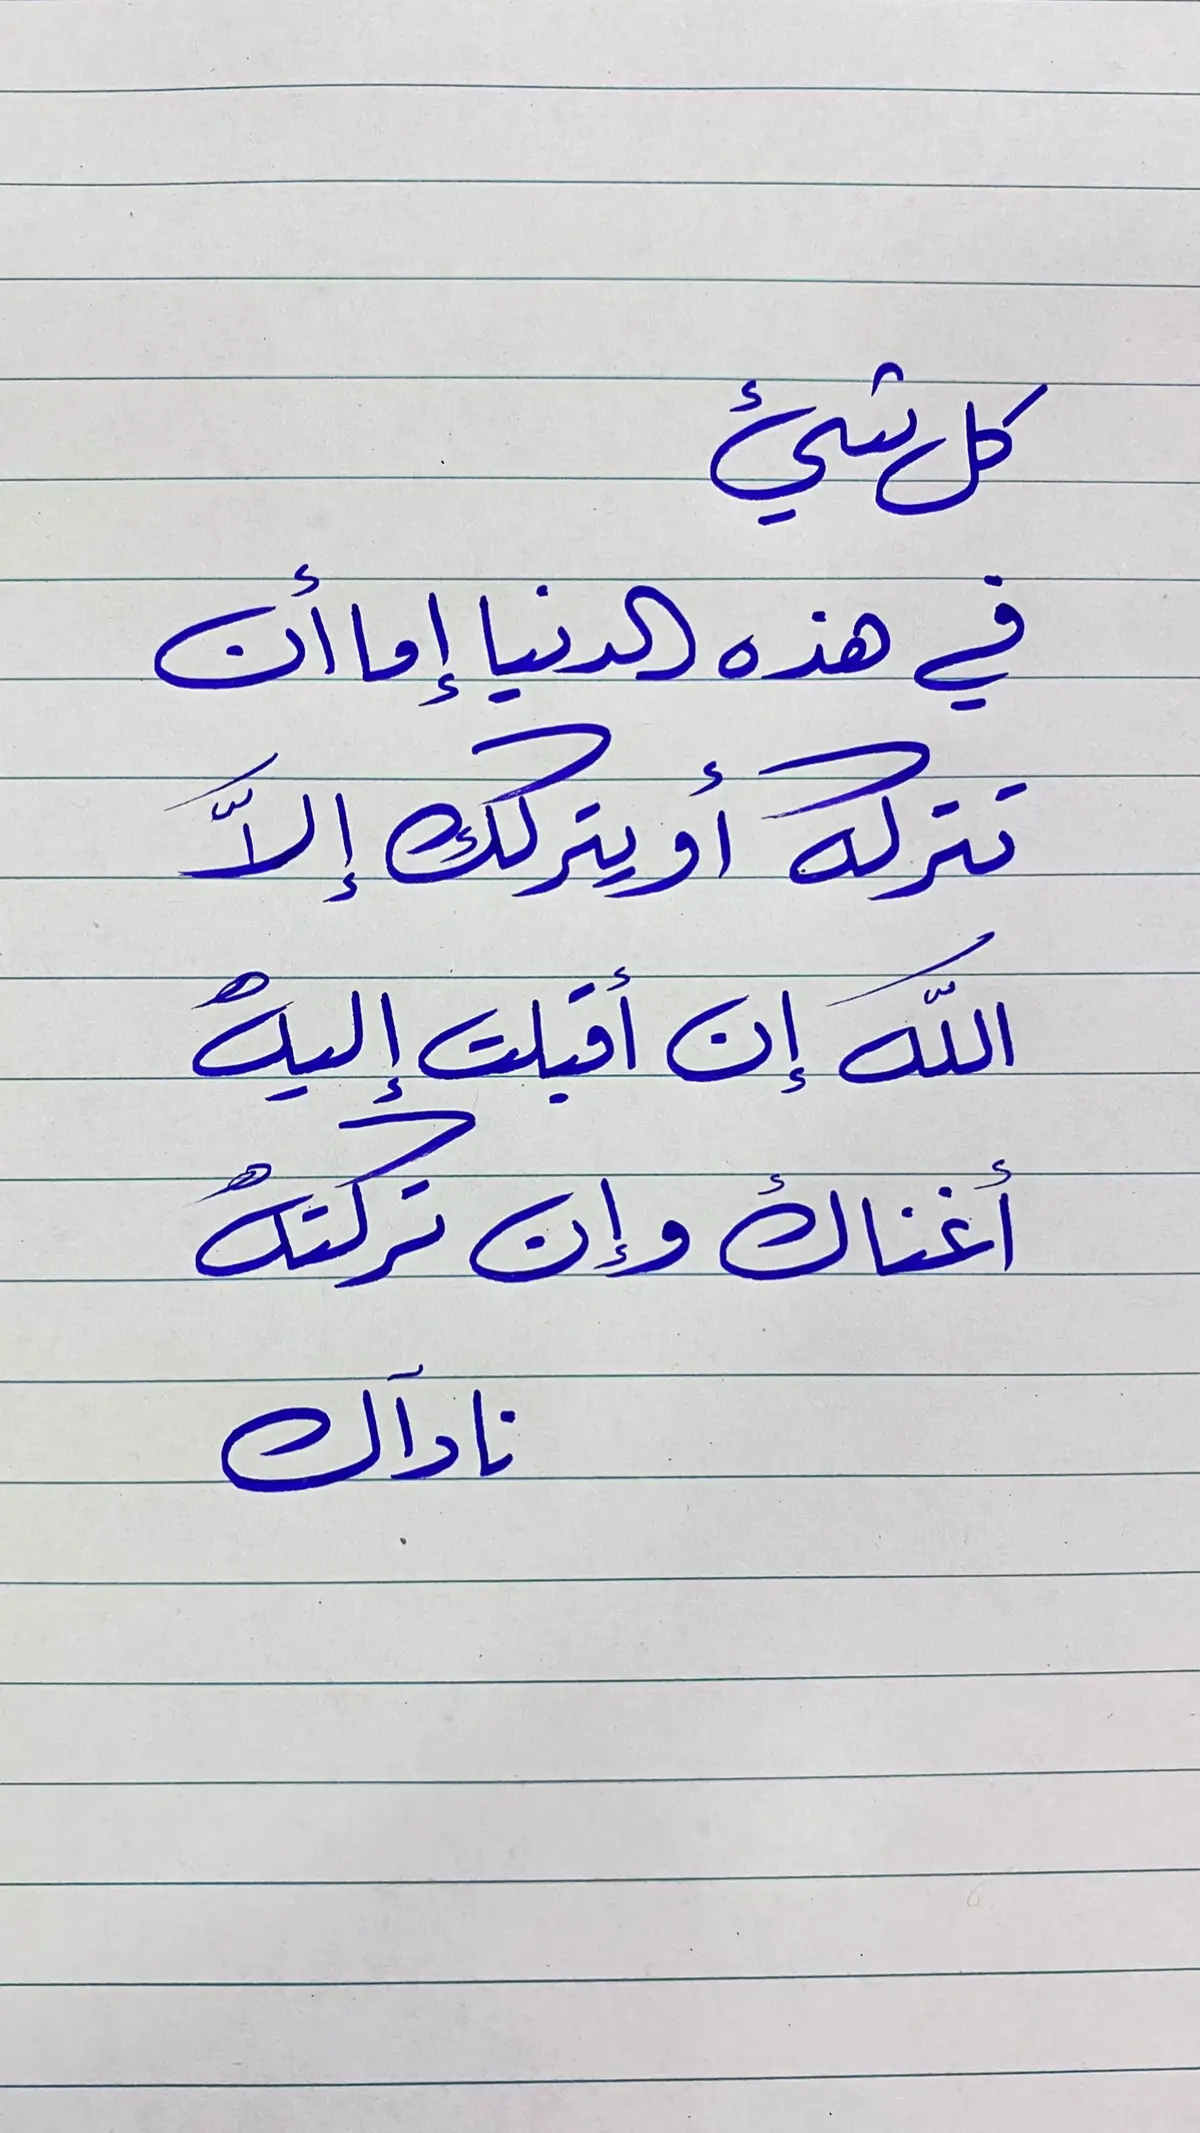 كل شيئ
في هذه الدنيا إما أن
تتركه أو يتركك إلاَّ
اللَّه إن أقبلت إليه
أغناك وإن تركته
نادآك